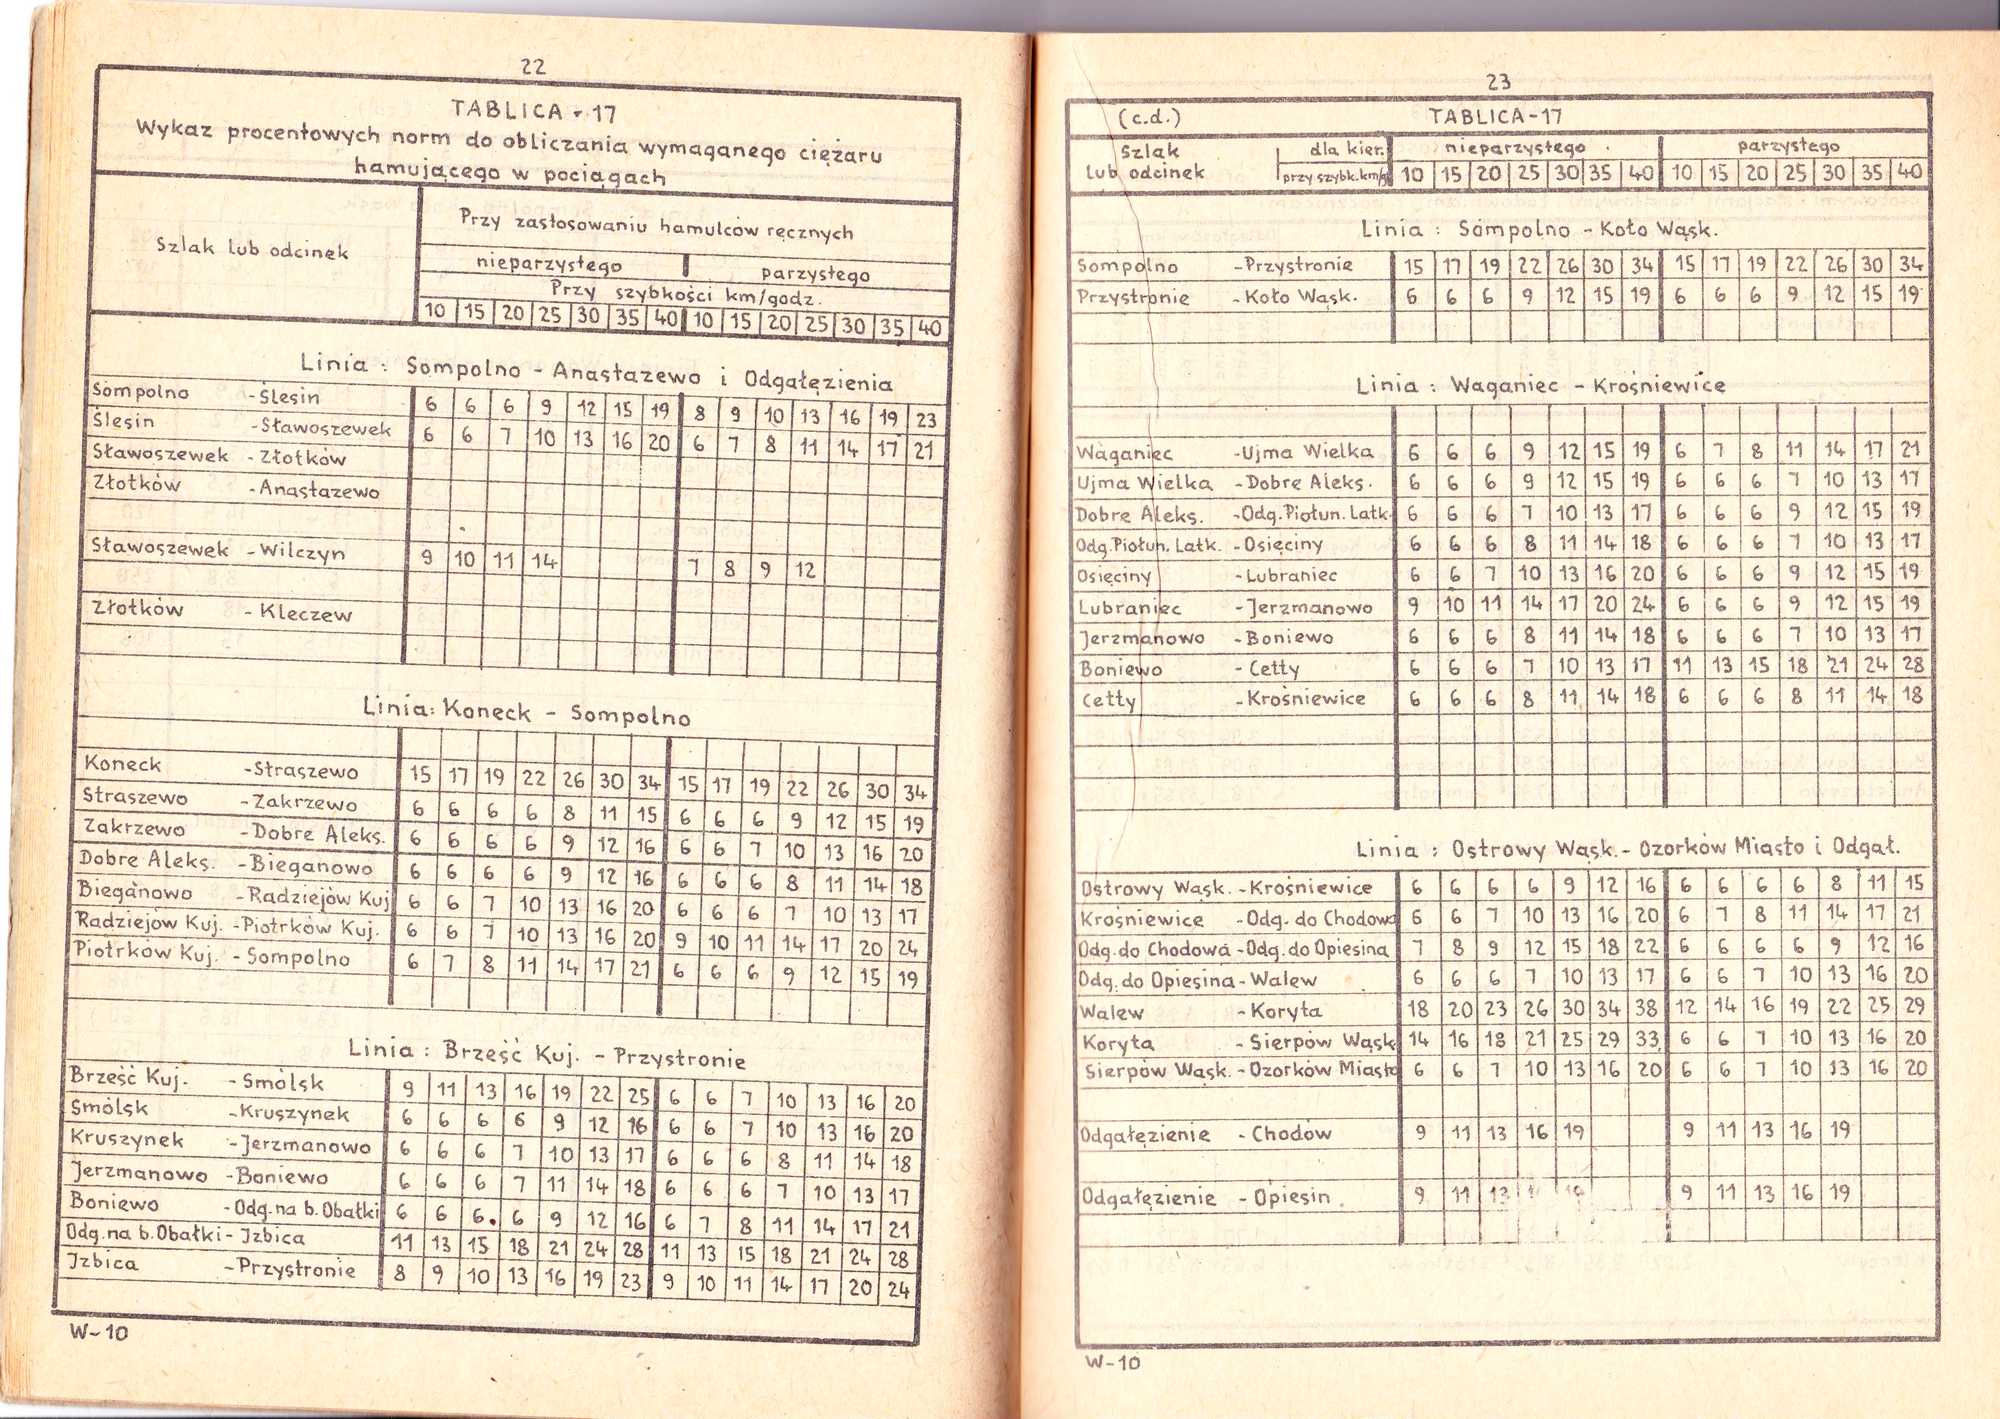 22
TABLICA - 17
Wykaz procentowych norm do obliczania wymaganego ciężaru
hamującego w pociągach
Szlak lub odcinek
Przy zastosowaniu hamulców ręcznych
nieparzystego parzystego
Przy szybkości km/godz.
10 15 20 25 30 35 40 10 15 20 25 30 35 40
Linia : Sompolno - Anastazewo i Odgałęzienia
Sompolno - Ślesin 6 6 6 9 12 15 19 8 9 10 13 16 19 23
Ślesin - Sławoszewek 6 6 7 10 13 16 20 6 7 8 11 14 17 21
Sławoszewek - Złotków
Złotków - Anastazewo
Sławoszewek - Wilczyn 9 10 11 14 7 8 9 12
Złotków - Kleczew
Linia: Koneck - Sompolno
Koneck - Straszewo 15 17 19 22 26 30 34 15 17 19 22 26 30 34
Straszewo - Zakrzewo 6 6 6 6 8 11 15 6 6 6 9 12 15 19
Zakrzewo - Dobre Aleks. 6 6 6 6 9 12 16 6 6 7 10 13 16 20
Dobre Aleks. - Bieganowo 6 6 6 6 9 12 16 6 6 6 8 11 14 18
Bieganowo - Radziejów Kuj 6 6 7 10 13 16 20 6 6 6 7 10 13 17
Radziejów Kuj. - Piotrków Kuj. 6 6 7 10 13 16 20 9 10 11 14 17 20 24
Piotrków Kuj. - Sompolno 6 7 8 11 14 17 21 6 6 6 9 12 15 19
Linia : Brześć Kuj. - Przystronie
Brześć Kuj. - Smólsk 9 11 13 16 19 22 25 6 6 7 10 13 16 20
Smólsk - Kruszynek 6 6 6 6 9 12 16 6 6 7 10 13 16 20
Kruszynek - Jerzmanowo 6 6 6 7 10 13 17 6 6 6 8 11 14 18
Jerzmanowo - Boniewo 6 6 6 7 11 14 18 6 6 6 7 10 13 17
Boniewo - Odg. na b. Obałki 6 6 6 6 9 12 16 6 7 8 11 14 17 21
Odg. na b. Obałki - Izbica 11 13 15 18 21 24 28 11 13 15 18 21 24 28
Izbica - Przystronie 8 9 10 13 16 19 23 9 10 11 14 17 20 24
W-10
23
(c.d.) TABLICA-17
Szlak dla kier. nieparzystego parzystego
lub odcinek przy szybk. km/g 10 15 20 25 30 35 40 10 15 20 25 30 35 40
Linia : Sompolno - Koło Wąsk.
Sompolno - Przystronie 15 17 19 22 26 30 34 15 17 19 22 26 30 34
Przystronie - Koło Wąsk. 6 6 6 9 12 15 19 6 6 6 9 12 15 19
Linia : Waganiec - Krośniewice
Waganiec - Ujma Wielka 6 6 6 9 12 15 19 6 7 8 11 14 17 21
Ujma Wielka - Dobre Aleks. 6 6 6 9 12 15 19 6 6 6 7 10 13 17
Dobre Aleks. - Odg. Piołun. Latk. 6 6 6 7 10 13 17 6 6 6 9 12 15 19
Odg. Piołun. Latk. - Osięciny 6 6 6 8 11 14 18 6 6 6 7 10 13 17
Osięciny - Lubraniec 6 6 7 10 13 16 20 6 6 6 9 12 15 19
Lubraniec - Jerzmanowo 9 10 11 14 17 20 24 6 6 6 9 12 15 19
Jerzmanowo - Boniewo 6 6 6 8 11 14 18 6 6 6 7 10 13 17
Boniewo - Cetty 6 6 6 7 10 13 17 11 13 15 18 21 24 28
Cetty - Krośniewice 6 6 6 8 11 14 18 6 6 6 8 11 14 18
Linia : Ostrowy Wąsk. - Ozorków Miasto i Odgał.
Ostrowy Wąsk. - Krośniewice 6 6 6 6 9 12 16 6 6 6 6 8 11 15
Krośniewice - Odg. do Chodowa 6 6 7 10 13 16 20 6 7 8 11 14 17 21
Odg. do Chodowa - Odg. do Opiesina 7 8 9 12 15 18 22 6 6 6 6 9 12 16
Odg. do Opiesina - Walew 6 6 6 7 10 13 17 6 6 7 10 13 16 20
Walew - Koryta 18 20 23 26 30 34 38 12 14 16 19 22 25 29
Koryta - Sierpów Wąsk 14 16 18 21 25 29 33 6 6 7 10 13 16 20
Sierpów Wąsk. - Ozorków Miasto 6 6 7 10 13 16 20 6 6 7 10 13 16 20
Odgałęzienie - Chodów 9 11 13 16 19 9 11 13 16 19
Odgałęzienie - Opiesin 9 11 13 19 9 11 13 16 19
W-10